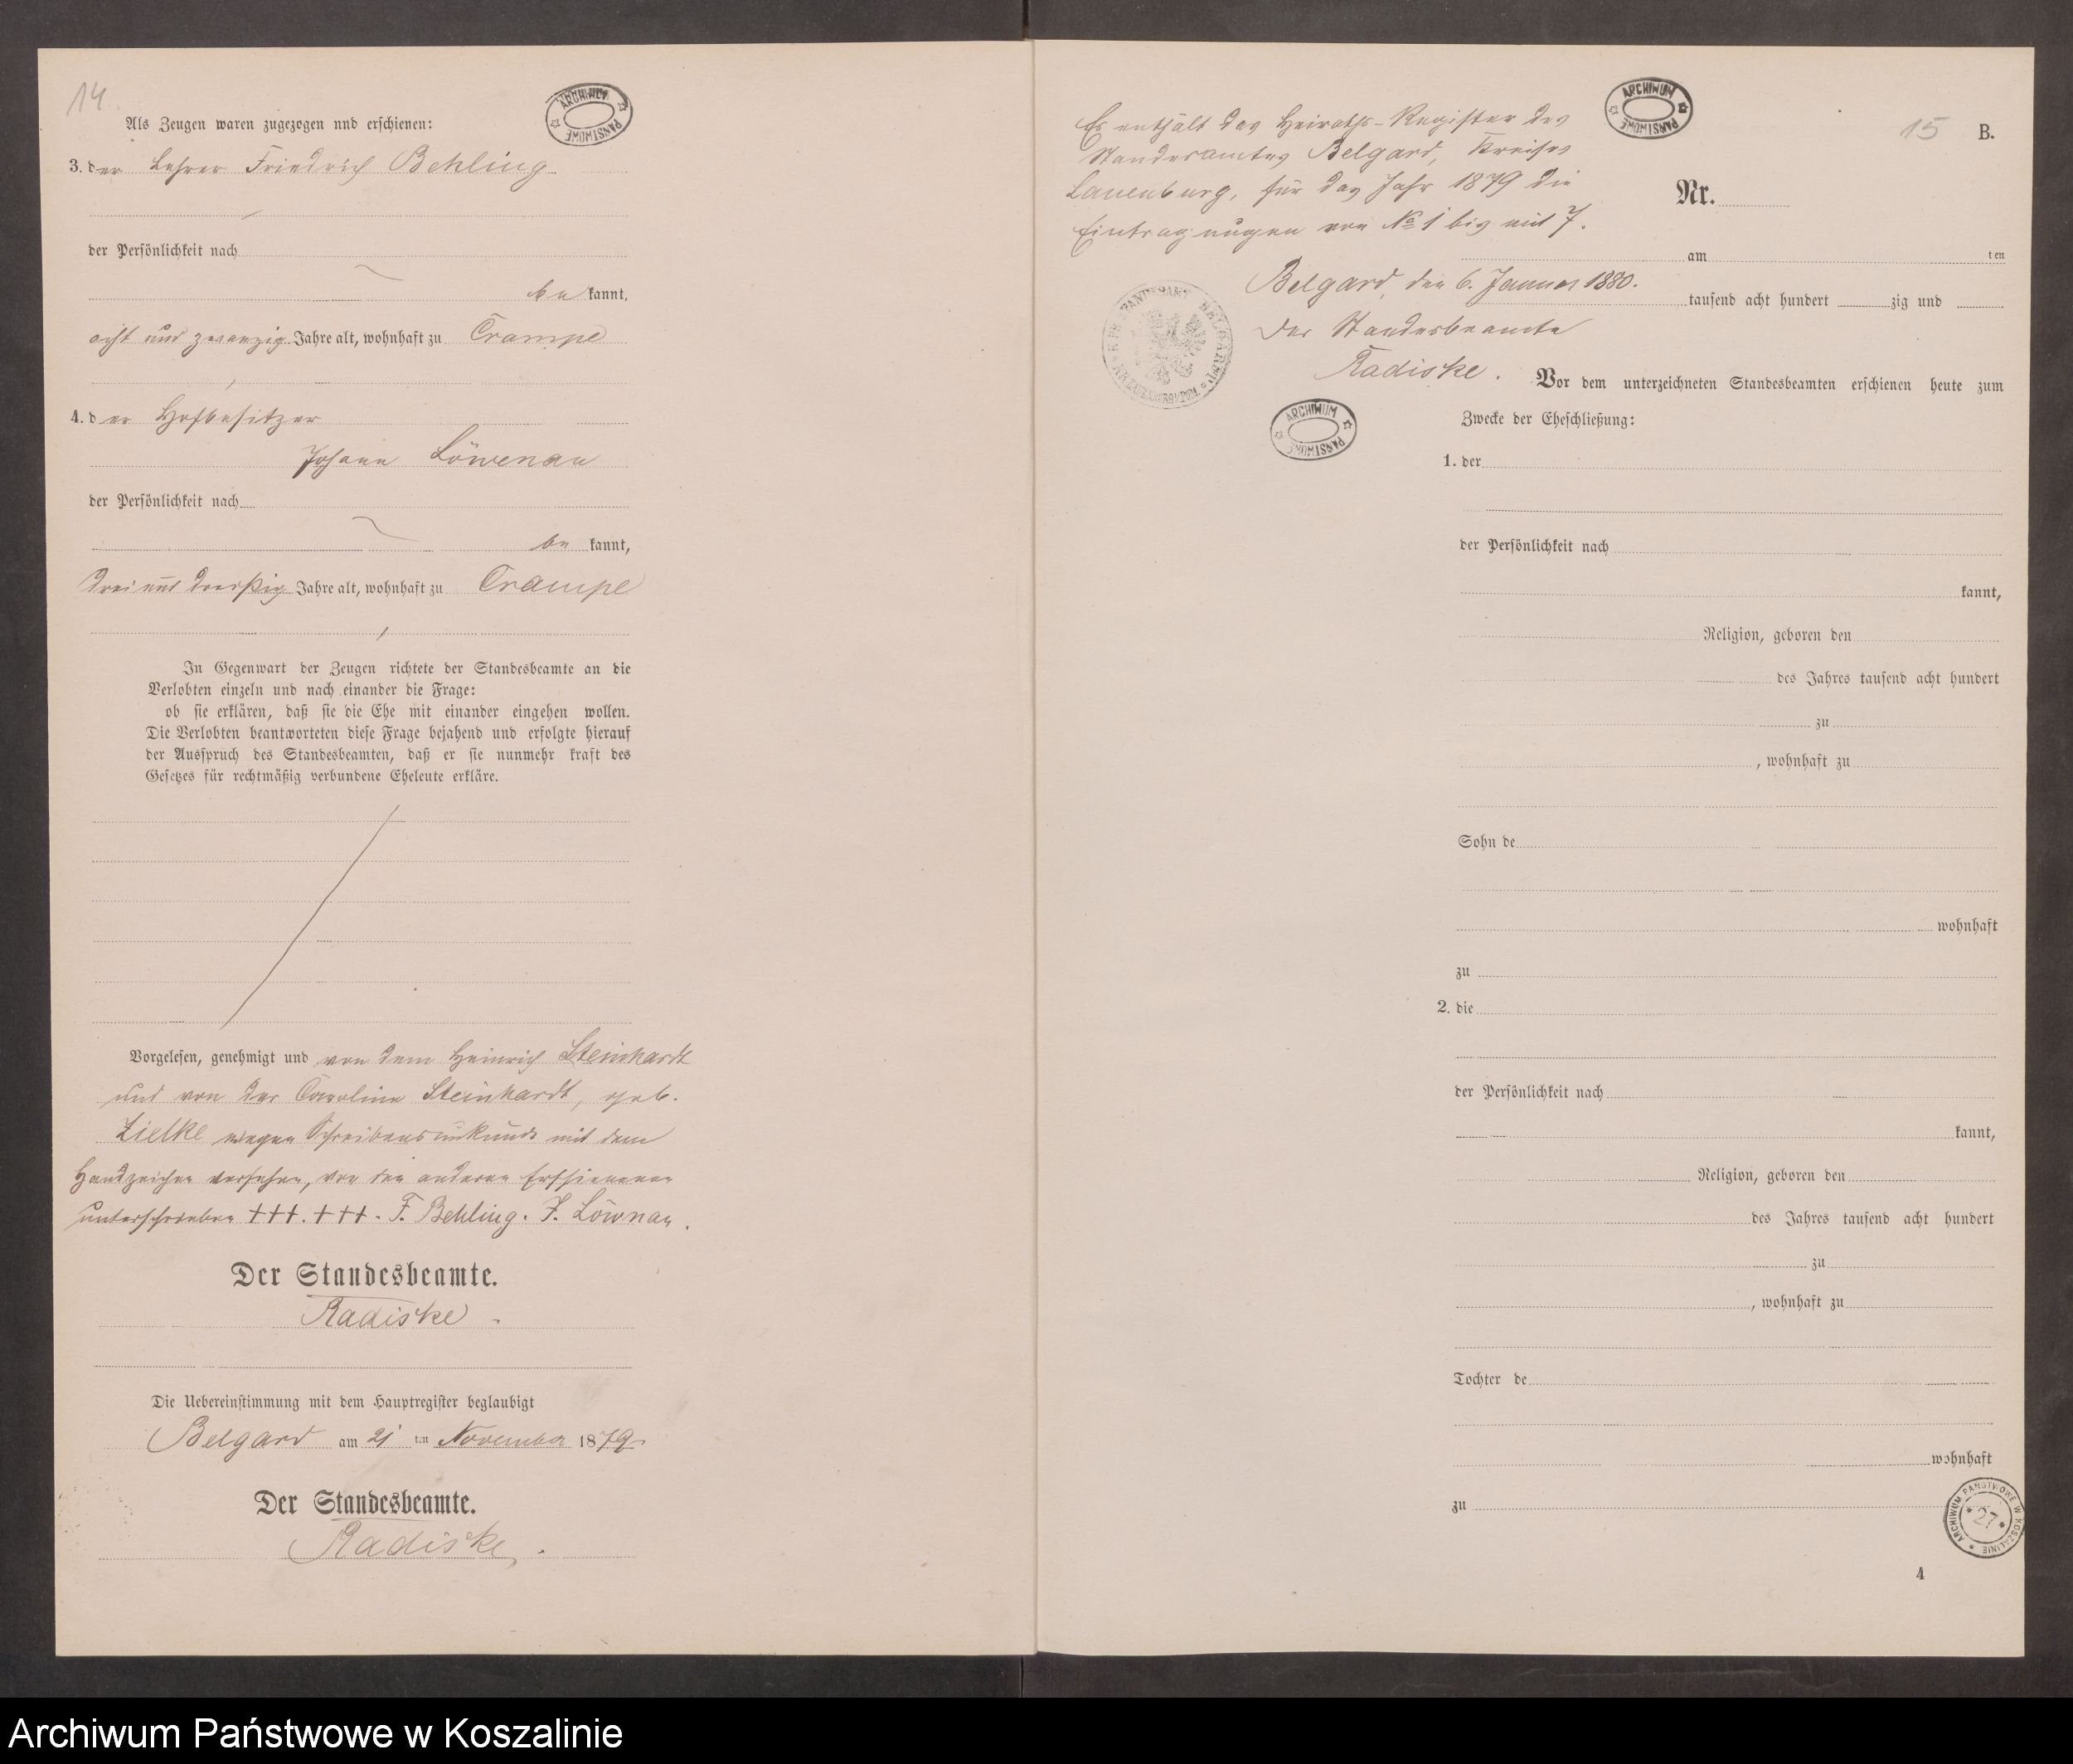 14
Als Zeugen waren zugezogen und erschienen:
3. der Lehrer Friedrich Behling
der Persönlichkeit nach
be kannt,
acht und zwanzig Jahre alt, wohnhaft zu Crampe
4. der Hofbesitzer
Johann Löwenau
der Persönlichkeit nach
be kannt,
drei und dreißig Jahre alt, wohnhaft zu Crampe
In Gegenwart der Zeugen richtete der Standesbeamte an die
Verlobten einzeln und nach einander die Frage:
ob sie erklären, daß sie die Ehe mit einander eingehen wollen.
Die Verlobten beantworteten diese Frage bejahend und erfolgte hierauf
der Ausspruch des Standesbeamten, daß er sie nunmehr kraft des
Gesetzes für rechtmäßig verbundene Eheleute erkläre.
Vorgelesen, genehmigt und von dem Heinrich Steinhardt
und von der Caroline Steinhardt, geb.
Zielke wegen Schreibensunkunde mit dem
Handzeichen versehen, von den anderen Erschienenen
unterschrieben +++. +++. F. Behling. J. Löwnau.
Der Standesbeamte.
Radiske.
Die Uebereinstimmung mit dem Hauptregister beglaubigt
Belgard am 21 ten November 1879
Der Standesbeamte.
Radiske.
ARCHIWUM PAŃSTWOWE
Es enthält das Heiraths-Register des
Standesamtes Belgard, Kreises
Lauenburg, für das Jahr 1879 die
Eintragungen von No 1 bis mit 7.
Belgard, den 6. Januar 1880.
Der Standesbeamte
Radiske.
ARCHIWUM PAŃSTWOWE
ARCHIWUM PAŃSTWOWE
15 B.
Nr.
am ten
tausend acht hundert zig und
Vor dem unterzeichneten Standesbeamten erschienen heute zum
Zwecke der Eheschließung:
1. der
der Persönlichkeit nach
kannt,
Religion, geboren den
des Jahres tausend acht hundert
zu
, wohnhaft zu
Sohn de
wohnhaft
zu
2. die
der Persönlichkeit nach
kannt,
Religion, geboren den
des Jahres tausend acht hundert
zu
, wohnhaft zu
Tochter de
wohnhaft
zu
ARCHIWUM PAŃSTWOWE W KOSZALINIE
27
4
Archiwum Państwowe w Koszalinie